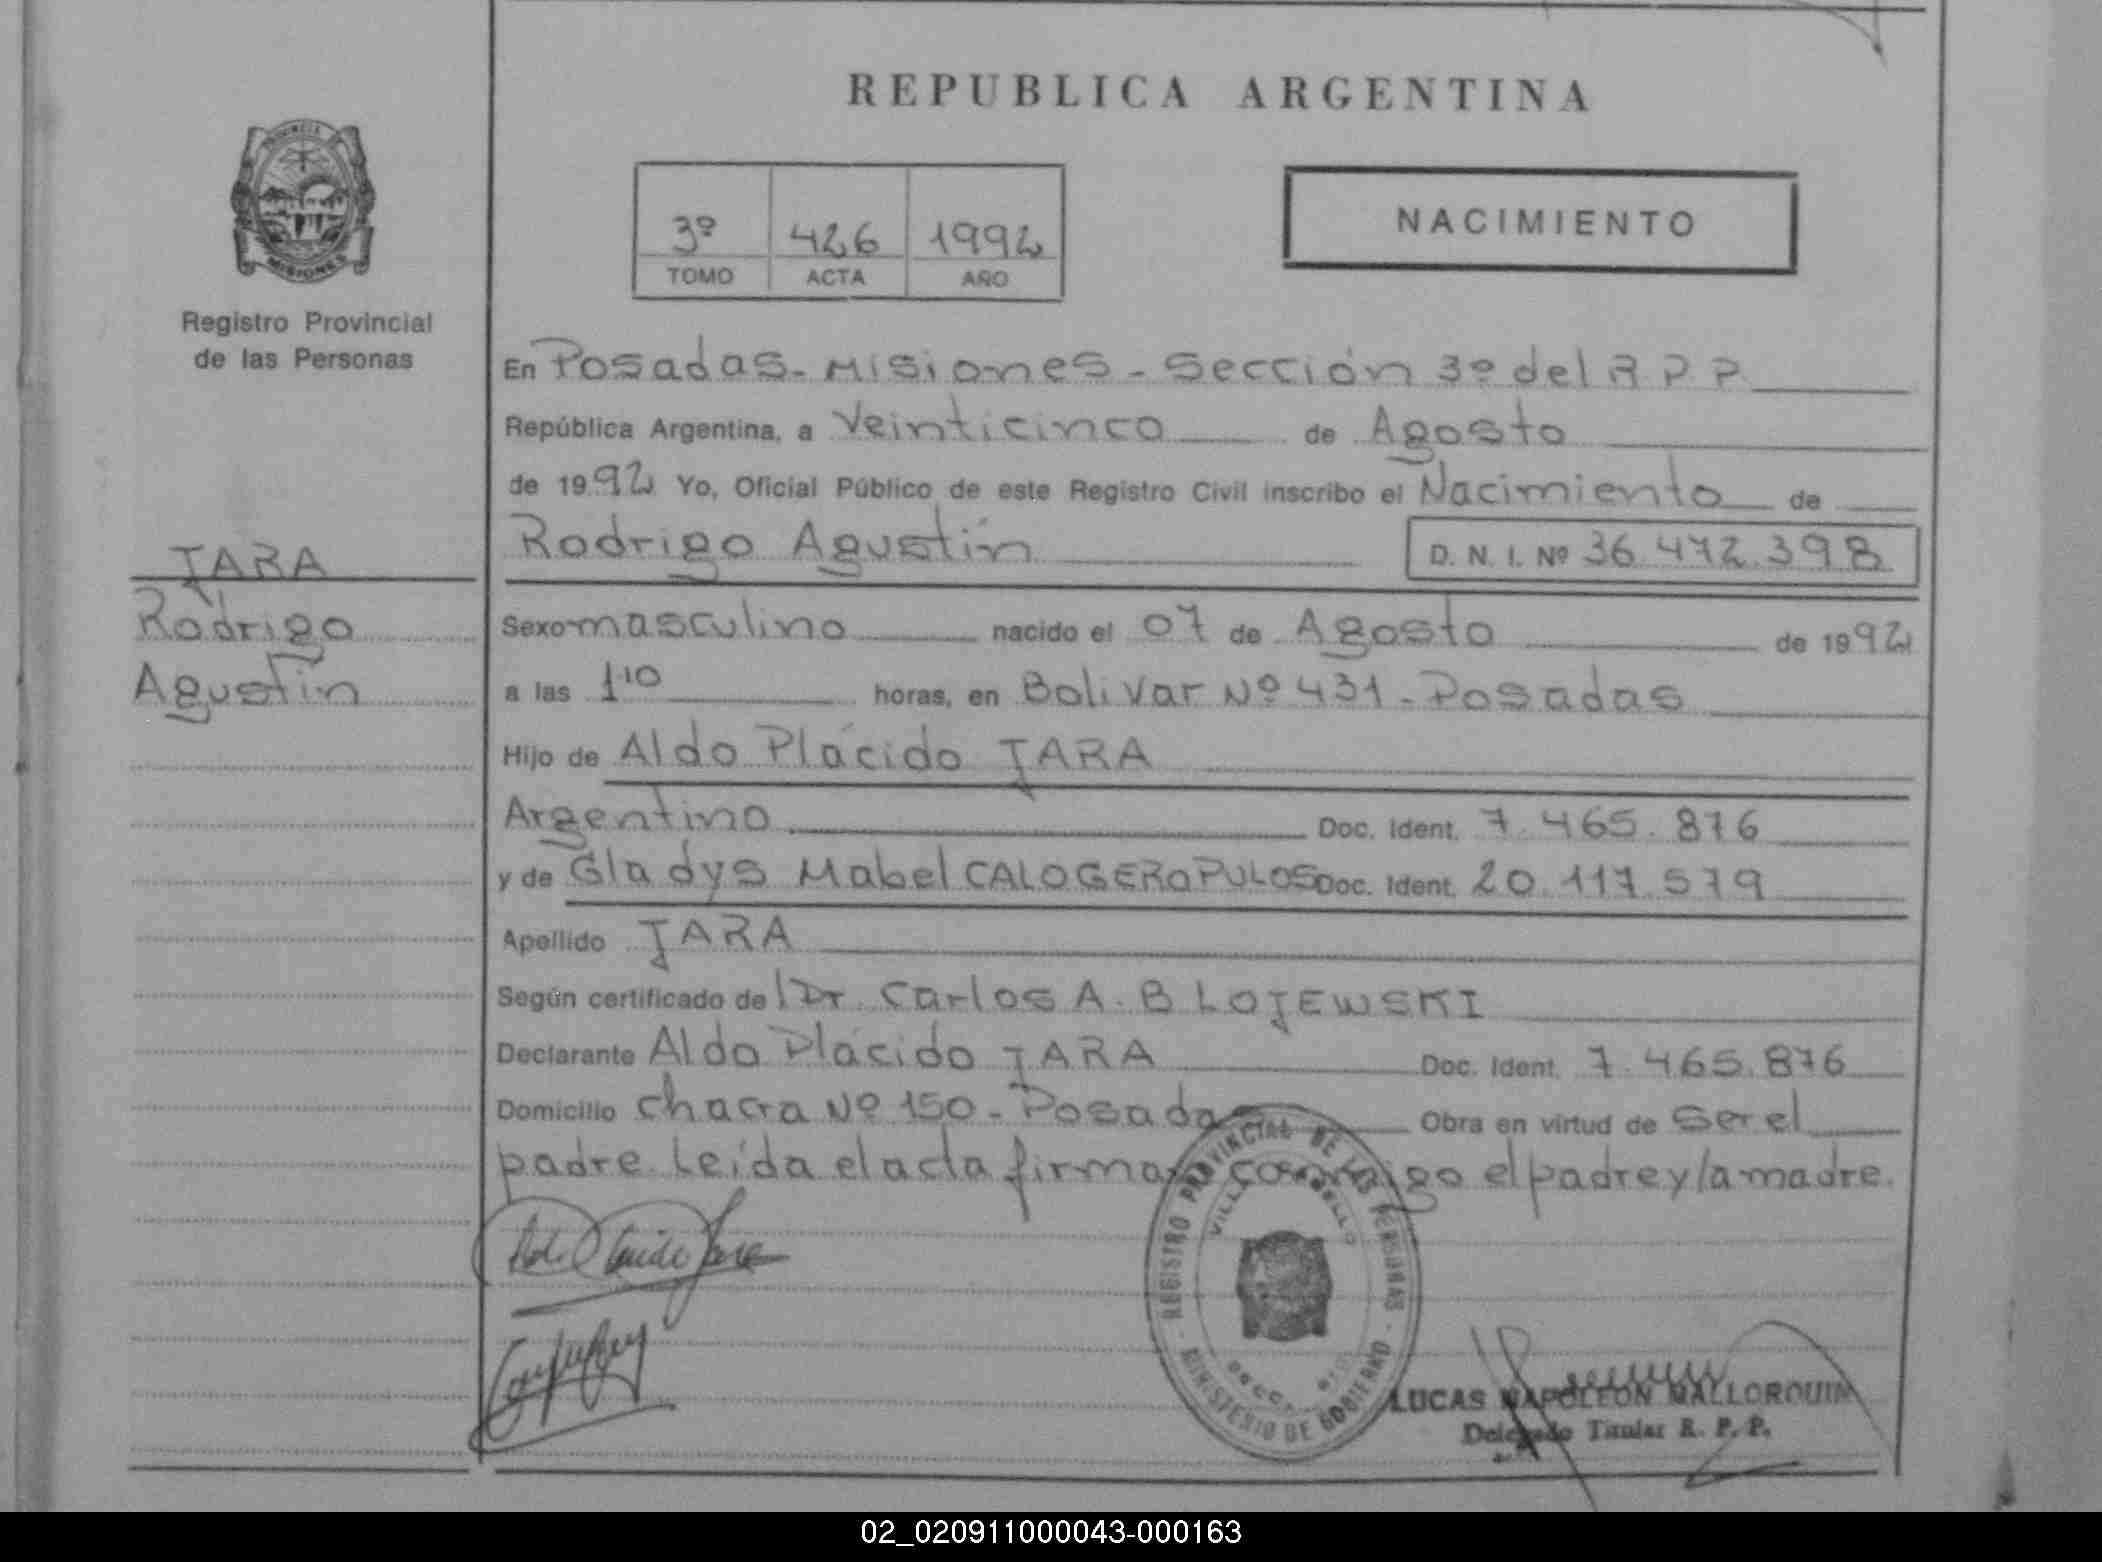 REPUBLICA ARGENTINA
PROVINCIA
MISIONES
Registro Provincial
de las Personas
3º 426 1992
TOMO ACTA AÑO
NACIMIENTO
En Posadas - Misiones - Sección 3º del R P P
República Argentina, a Veinticinco de Agosto
de 1992 Yo, Oficial Público de este Registro Civil inscribo el Nacimiento de
Rodrigo Agustín D. N. I. Nº 36.472.398
JARA
Rodrigo
Agustín
Sexo masculino nacido el 07 de Agosto de 1992
a las 1'10 horas, en Bolivar Nº 431 - Posadas
Hijo de Aldo Plácido JARA
Argentino Doc. Ident. 7.465.876
y de Gladys Mabel CALOGEROPULOS Doc. Ident. 20.117.579
Apellido JARA
Según certificado del Dr. Carlos A. BLOJEWSKI
Declarante Aldo Plácido JARA Doc. Ident. 7.465.876
Domicilio chacra Nº 150 - Posadas Obra en virtud de ser el
padre. Leída el acta firman conmigo el padre y la madre.
REGISTRO PROVINCIAL DE LAS PERSONAS
MINISTERIO DE GOBIERNO
LUCAS NAPOLEON MALLORQUIN
Delegado Titular R. P. P.
02_020911000043-000163